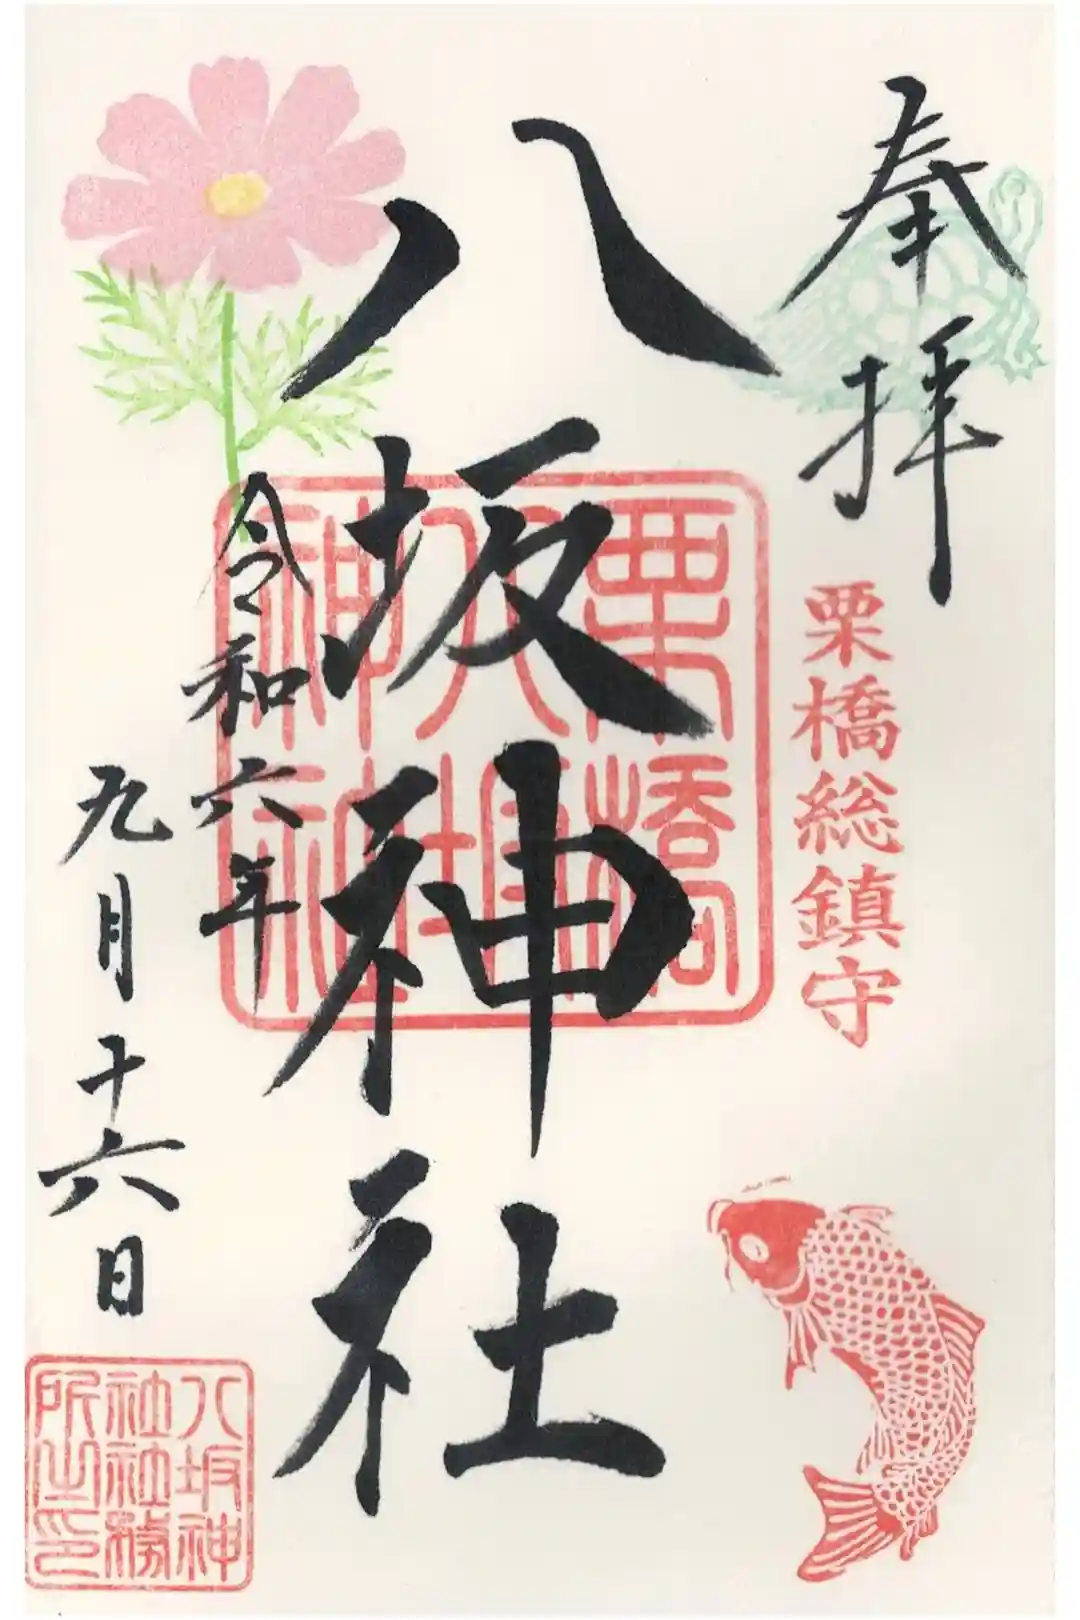 奉拝
栗橋総鎮守
栗橋
八坂
神社
八坂神社
令和六年
九月十六日
八坂神
社社務
所之印